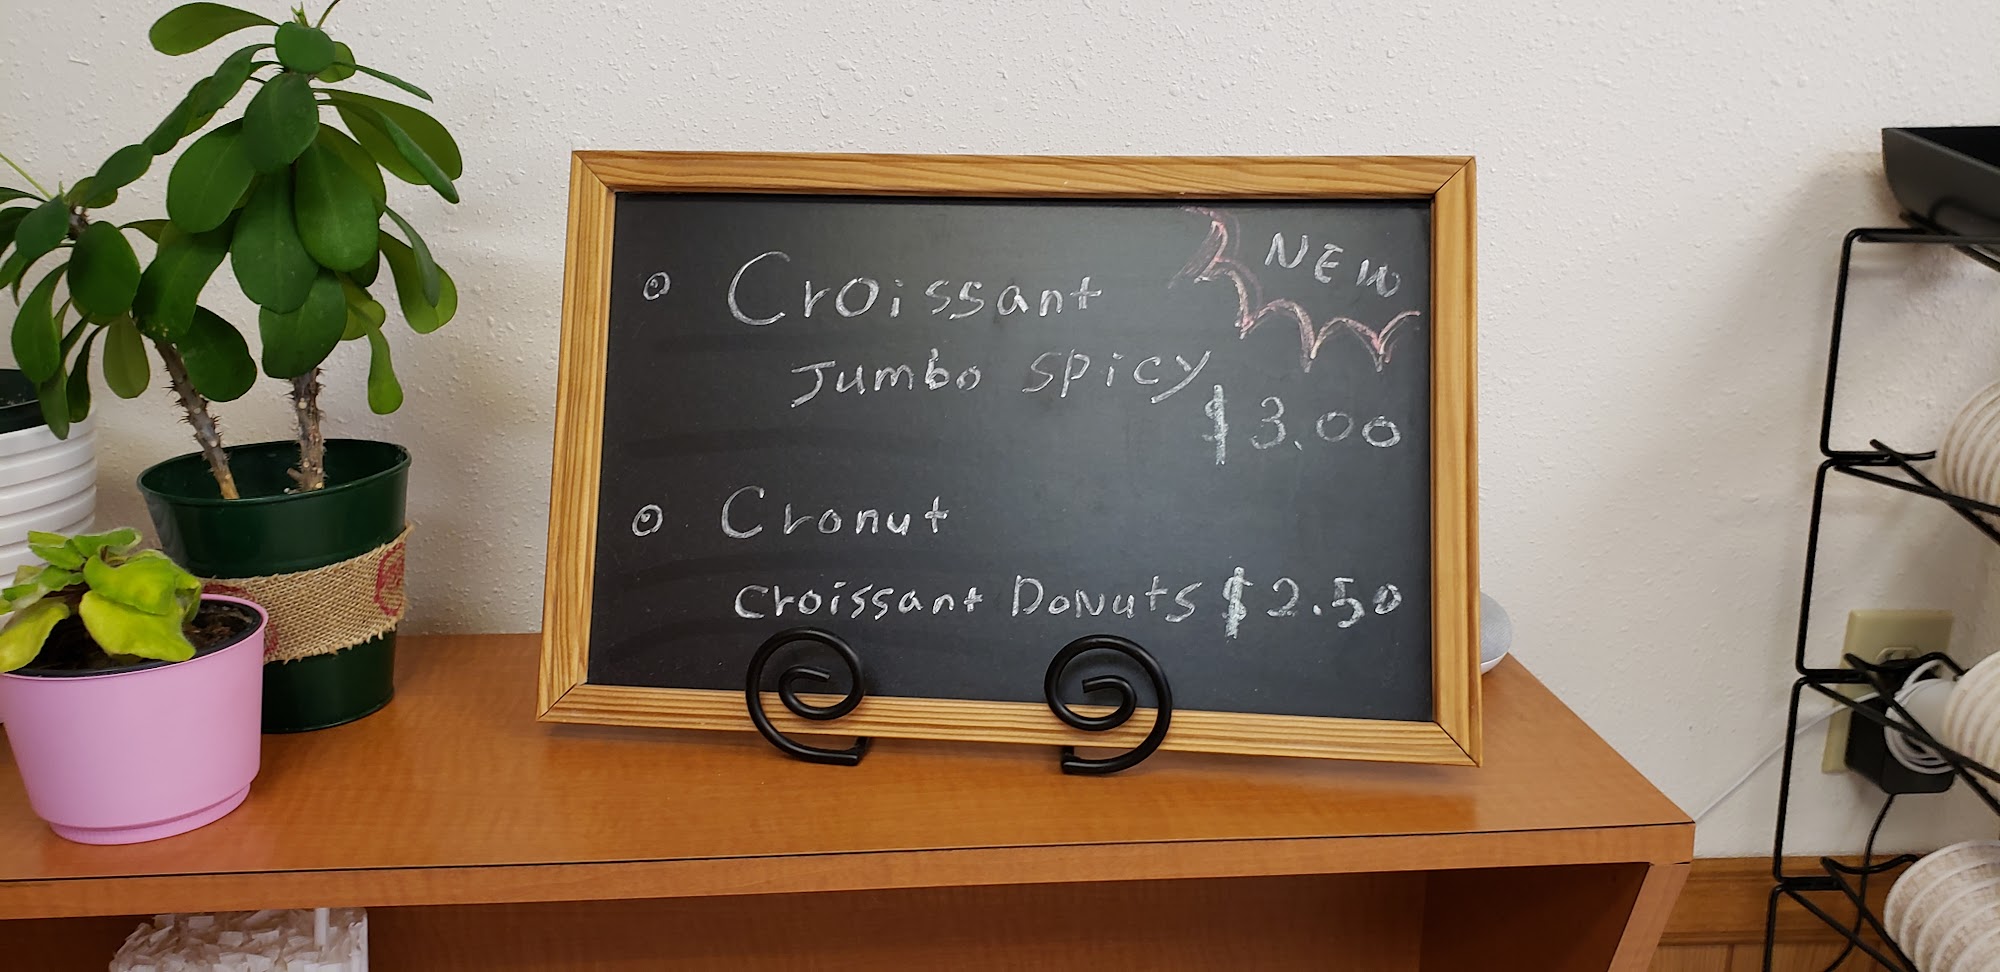 NEW
Croissant
Jumbo spicy
$3.00
Cronut
croissant Donuts $2.50